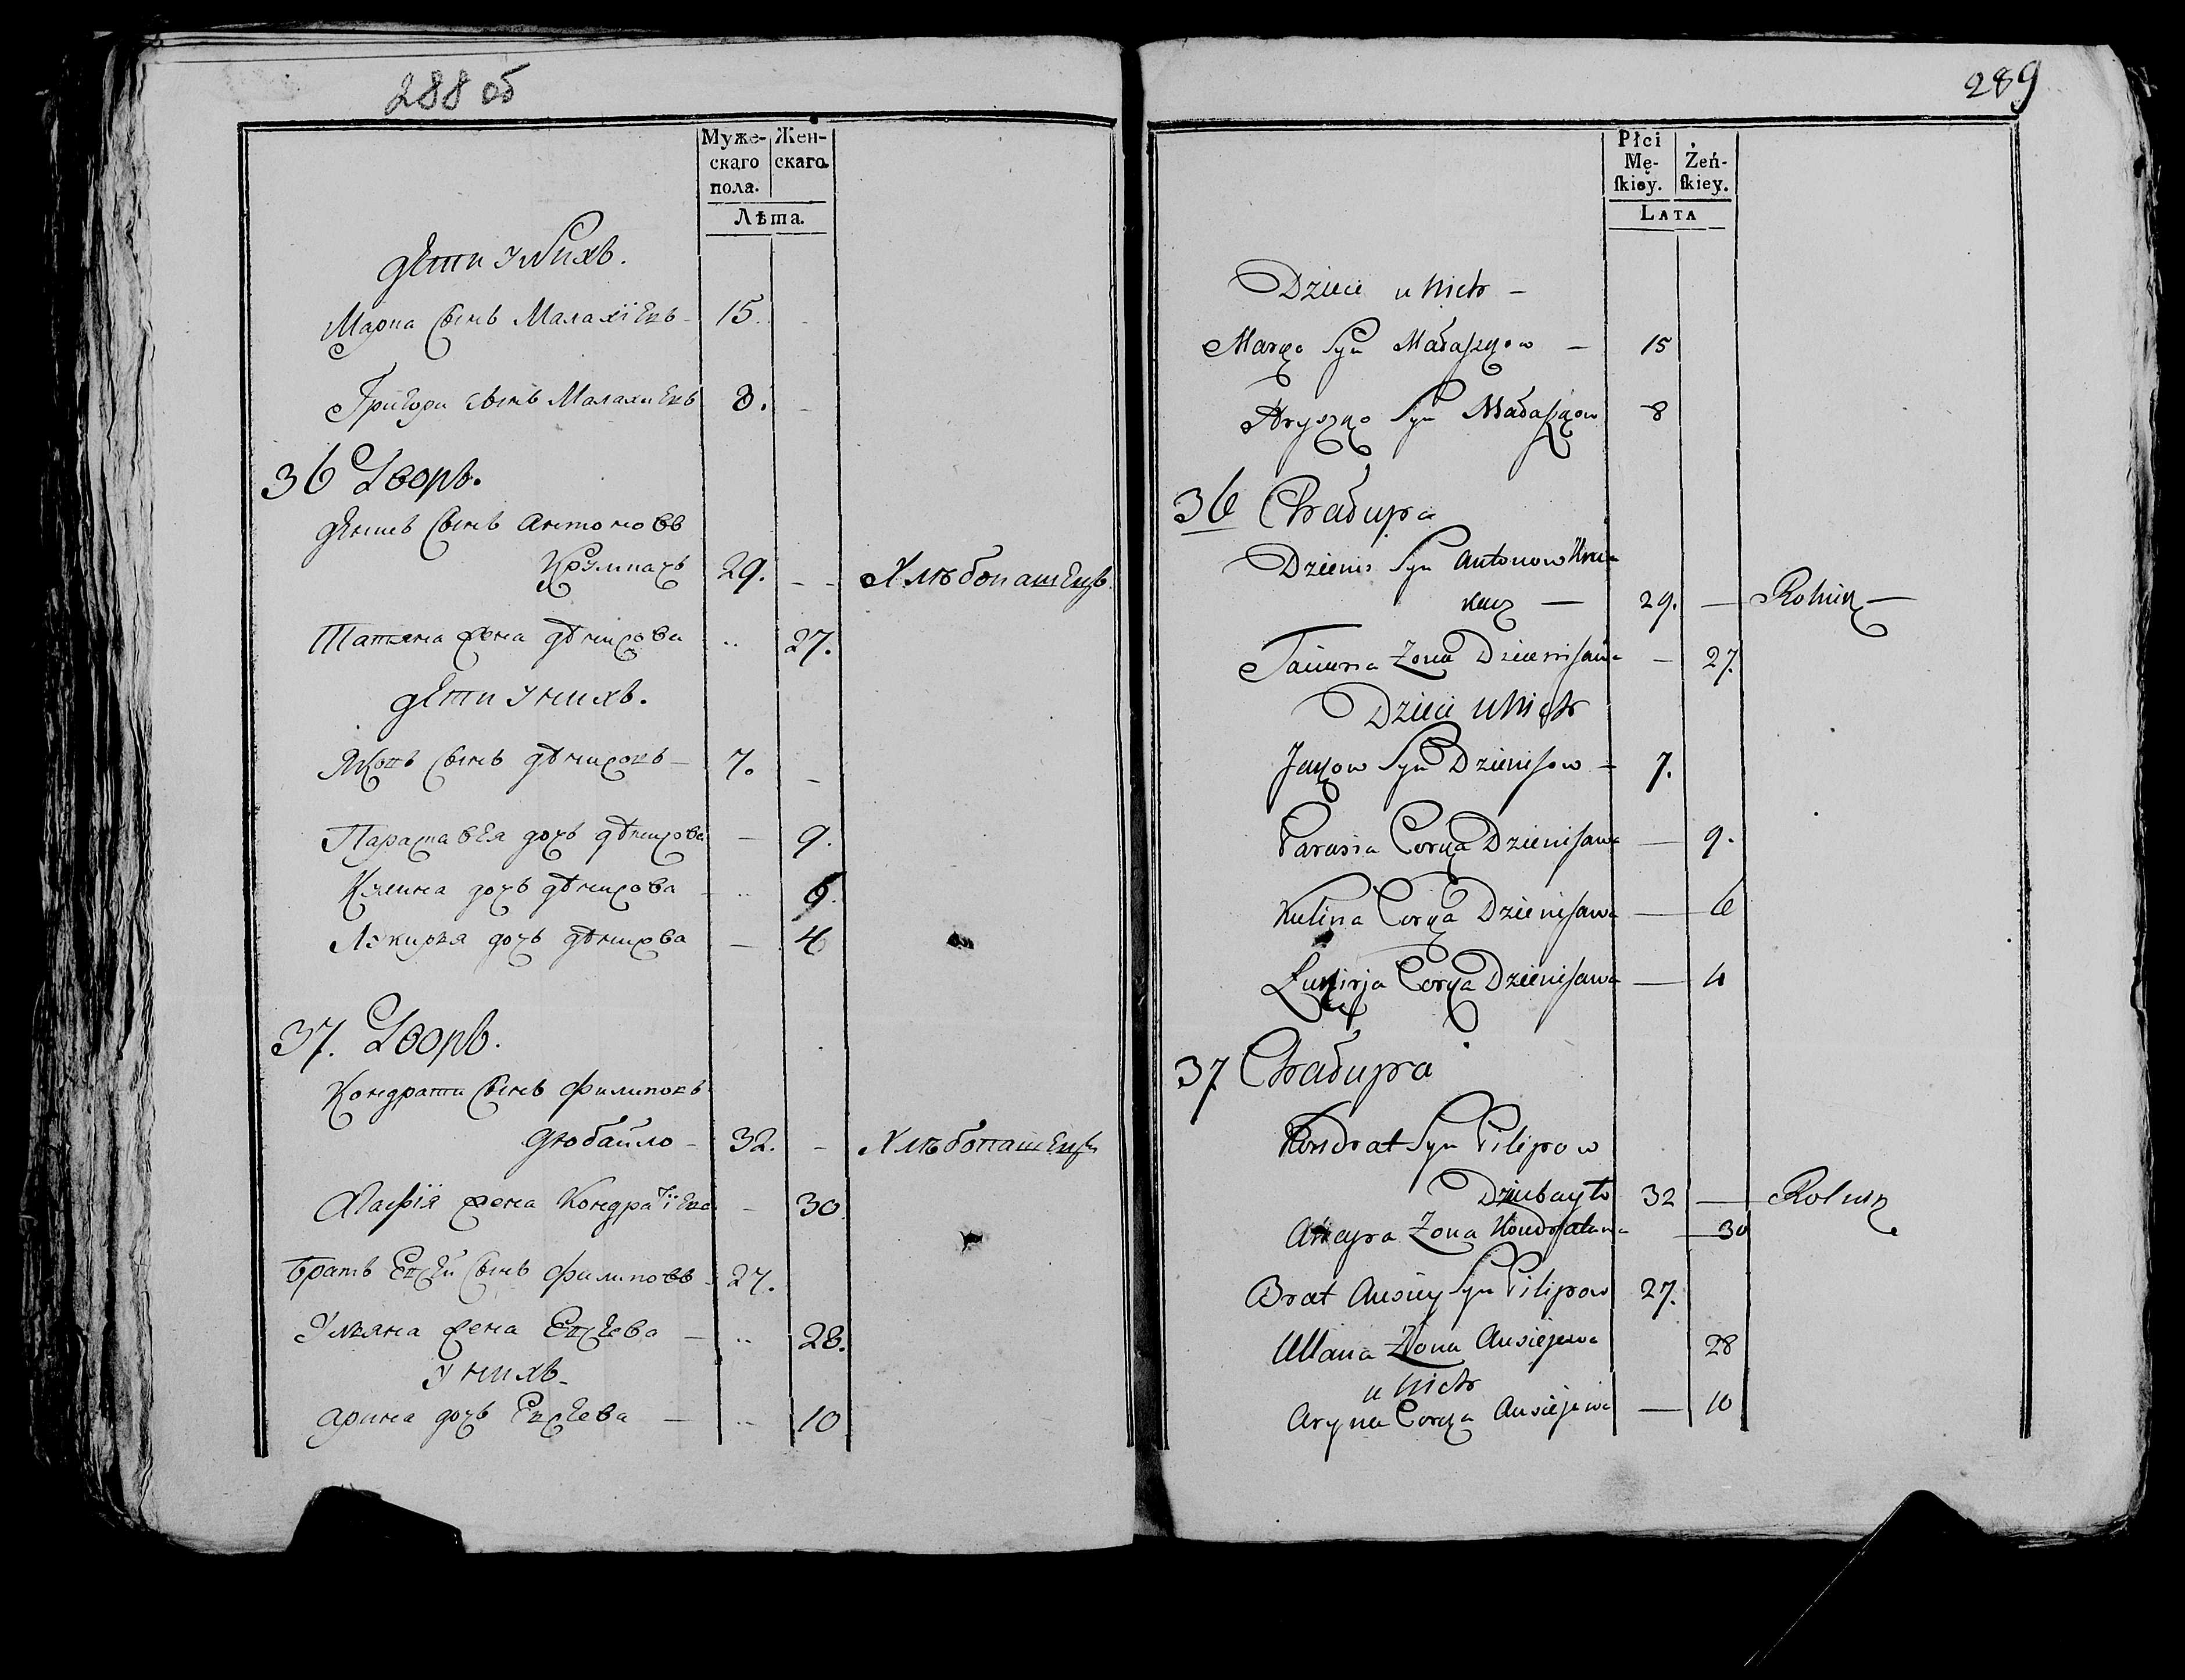 288 об
Муже- Жен-
скаго скаго
пола.
Лѣта.
дети у нихъ.
Марка сынъ Малахіевъ 15.
Григори сынъ Малахиевъ 8.
36 Дворъ.
денисъ сынъ антоновъ
29. Хлѣбопашецъ
Татяна жена дѣнисова 27.
дети у нихъ.
Яковъ сынъ дѣнисовъ 7.
Параскавея дочь дѣнисова 9.
Кулина дочь дѣнисова 6.
Лукирья дочь дѣнисова 4
37. Дворъ.
Кондрати сынъ филиповъ
дюбайло 32. Хлѣбопашецъ
Агафія жена Кондратіева 30.
братъ Евсей сынъ филиповъ 27.
Ульяна жена Евсеева 28.
у нихъ
арина дочь Евсеева 10
289
Płci
Mę- Żeń-
skiey. skiey.
LATA
Dzieci u Nich
Marko Syn Małaszkow 15
Hryszko Syn Małaszkow 8
36 Chałupa
Dzienis Syn Antonow
29. Rolnik
Tacianna Zona Dzienisawa 27.
Dzieci u Nich
Jakow Syn Dzienisow 7.
Parasia Corka Dzienisawa 9.
Kulina Corka Dzienisawa 6
Łukirja Corka Dzienisawa 4
37 Chałupa
Kondrat Syn Pilipow
Dziubayło 32 Rolnik
Zona Kondratawa 30
Brat Ausiey Syn Pilipow 27.
Ullana Zona Ausiejewa 28
u Nich
Aryna Corka Ausiejewa 10